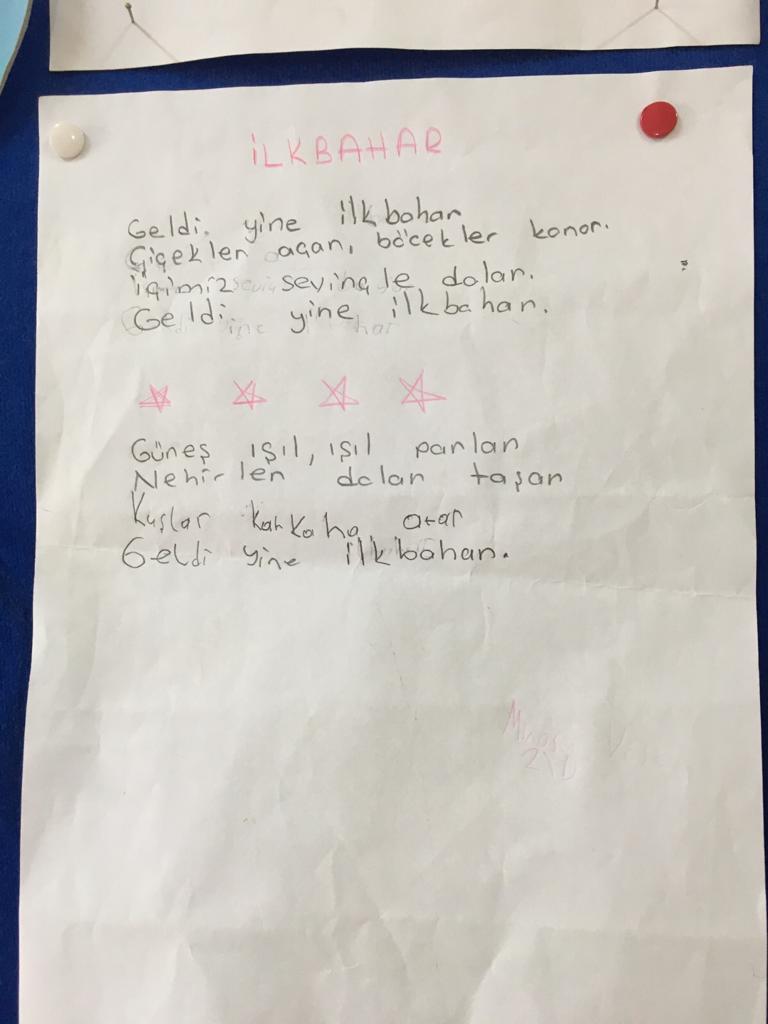 İLKBAHAR
Geldi. yine ilkbahar
Çiçekler açar, böcekler konar.
içimiz sevinçle dolar.
Geldi. yine ilkbahar.
Güneş ışıl, ışıl parlar
Nehirler dolar taşar
Kuşlar kahkaha atar
Geldi yine ilkbahar.